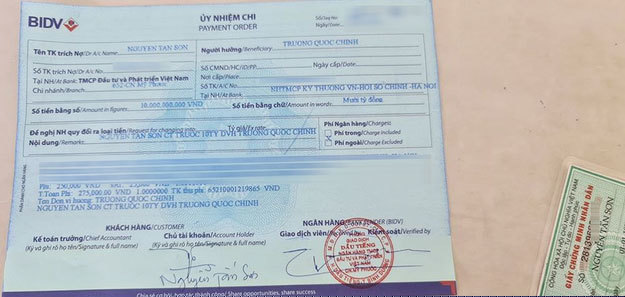 BIDV
ỦY NHIỆM CHI
PAYMENT ORDER
Số/Seq No
Ngày/Date
Tên TK trích Nợ/Dr A/c Name NGUYEN TAN SON
Người hưởng/Beneficiary: TRUONG QUOC CHINH
Số TK trích Nợ/Dr A/c
Số CMND/HC/ID/PP: Ngày cấp/Date:
Nơi cấp/Place:
Tại NH/At Bank: TMCP Đầu tư và Phát triển Việt Nam
Số TK/A/C No:
Chi nhánh/Branch: 652-CN Mỹ Phước
Tại NH/At Bank NHTMCP KY THUONG VN-HOI SO CHINH -HA NOI
Số tiền bằng số/Amount in figures: 10,000,000,000 VND
Số tiền bằng chữ/Amount in words: Mười tỷ đồng
Đề nghị NH quy đổi ra loại tiền/Request for changing into: Tỷ giá/Ex rate:
Nội dung/Remarks: NGUYEN TAN SON CT TRUOC 10TY DVH TRUONG QUOC CHINH
Phí Ngân hàng/Charges:
Phí trong/Charge Included
Phí ngoài/Charge Excluded
Phi: 250,000 VND
T.Toan Phi: 275,000.00 VND 1.0000000 TK thu phi: 65210001219865 VND
Ten Don vi huong: TRUONG QUOC CHINH
NGUYEN TAN SON CT TRUOC 10TY DVH TRUONG QUOC CHINH
KHÁCH HÀNG/CUSTOMER
NGÂN HÀNG/BANK SENDER (BIDV)
Kế toán trưởng/Chief Accountant
Chủ tài khoản/Account Holder
Giao dịch viên/ Kiểm soát/Verified by
(Ký và ghi rõ họ tên/Signature & full name)
(Ký và ghi rõ họ tên/Signature & full name)
GIAO DỊCH
DẦU TIẾNG
NGÂN HÀNG TMCP
ĐẦU TƯ VÀ PHÁT TRIỂN
VIỆT NAM
CN MỸ PHƯỚC
Nguyễn Tấn Sơn
Chia sẻ cơ hội, hợp tác thành công/Share opportunities, share success
CỘNG HÒA XÃ HỘI CHỦ NGHĨA VIỆT NAM
GIẤY CHỨNG MINH NHÂN DÂN
NGUYỄN TẤN SƠN